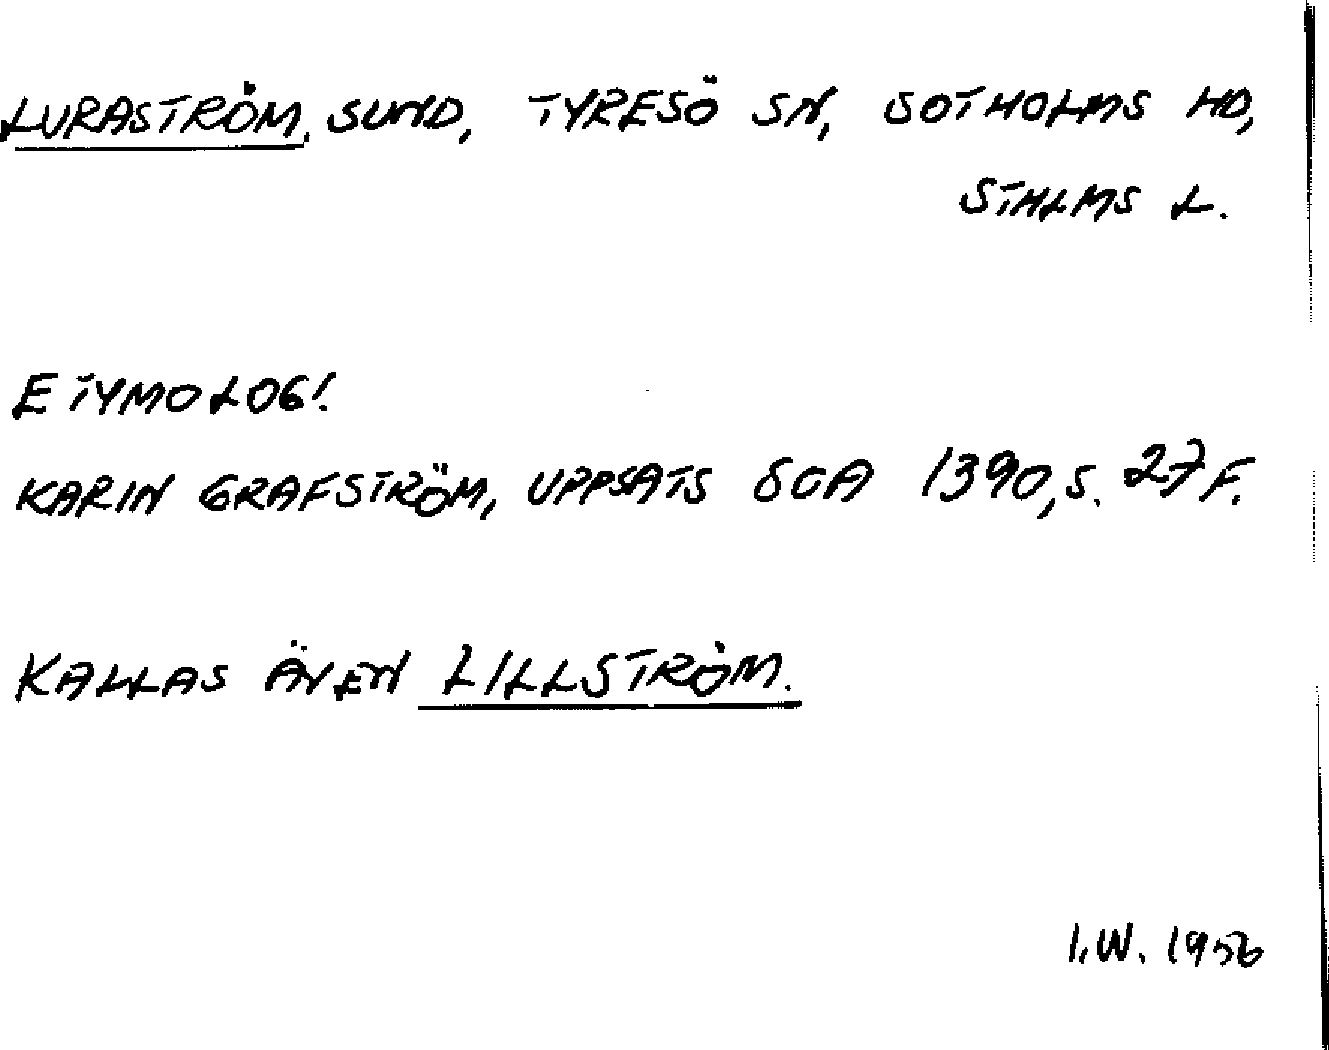 LURASTRÖM, SUND, TYRESÖ SN, SOTHOLMS HD,
STHLMS L.
ETYMOLOGI.
KARIN GRAFSTRÖM, UPPSATS SOA 1390, S. 27 F.
KALLAS ÄVEN LILLSTRÖM.
I.W. 1956